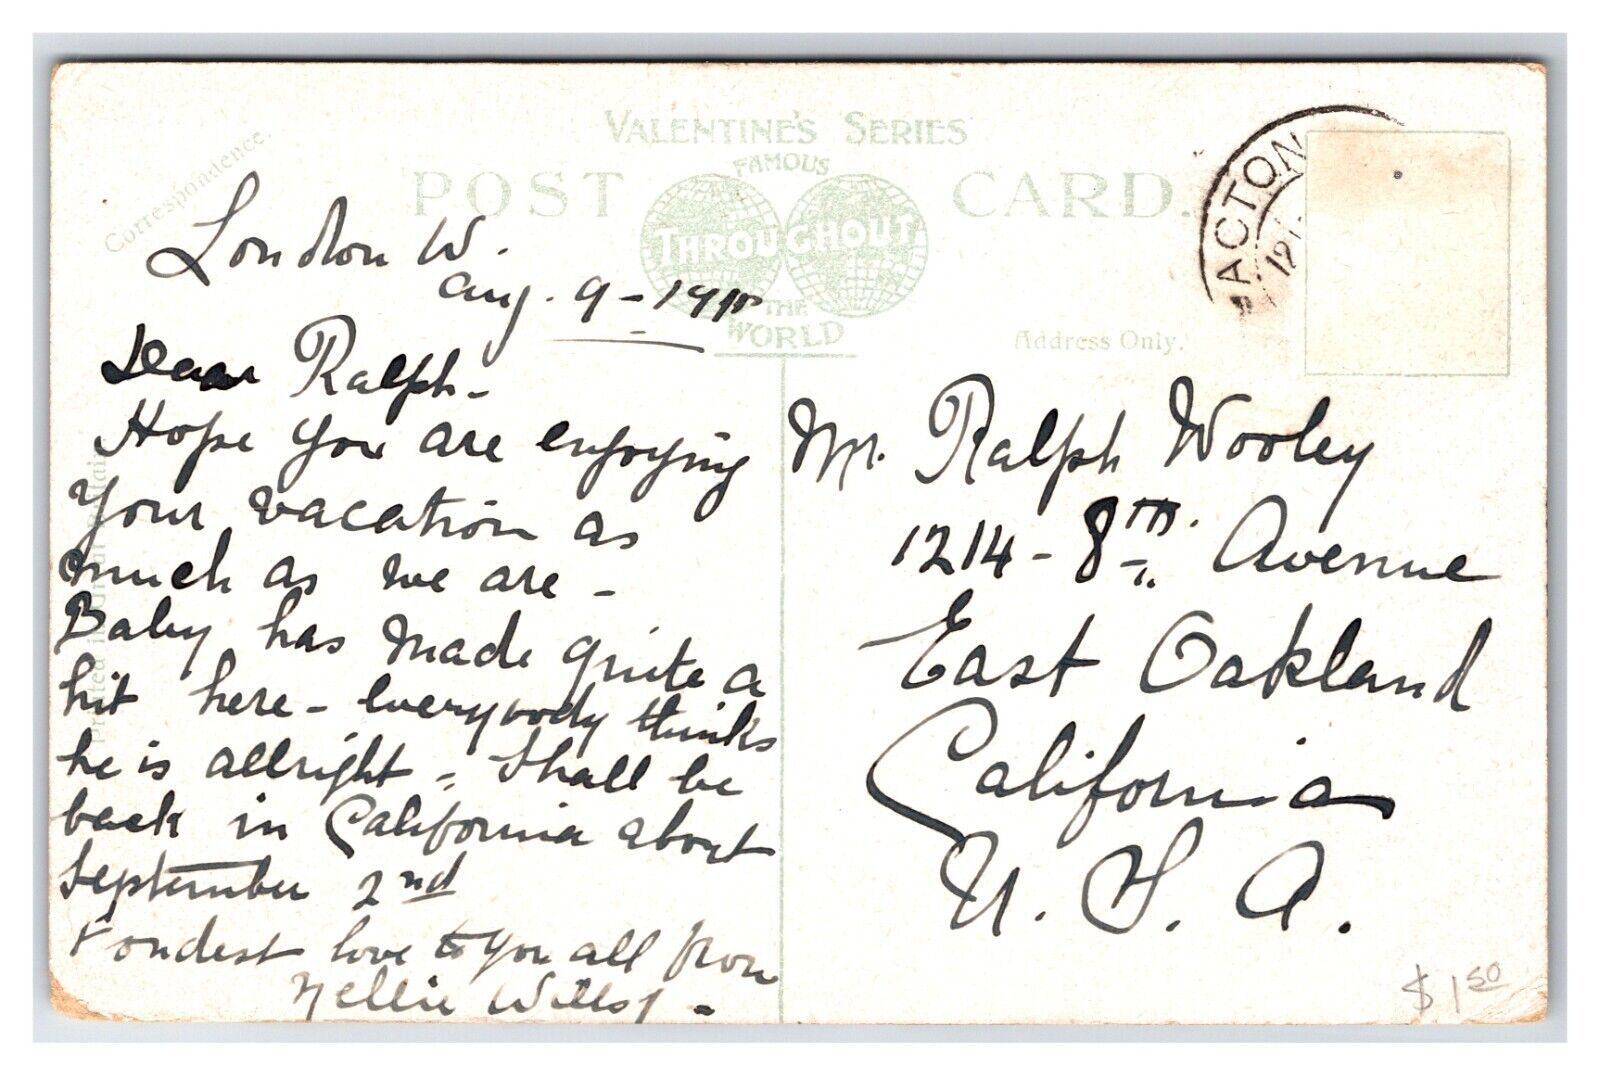 VALENTINE'S SERIES
FAMOUS
POST CARD.
THROUGHOUT
THE
WORLD
Correspondence.
Address Only.
ACTON
12
Printed in
London W.
Aug. 9 - 1910
Dear Ralph -
Hope you are enjoying
your vacation as
much as we are -
Baby has made quite a
hit here - everybody thinks
he is allright - Shall be
back in California about
September 2nd
Fondest love to you all from
Nellie
Mr. Ralph Wooley
1214 - 8TH. Avenue
East Oakland
California
U. S. A.
$1.50